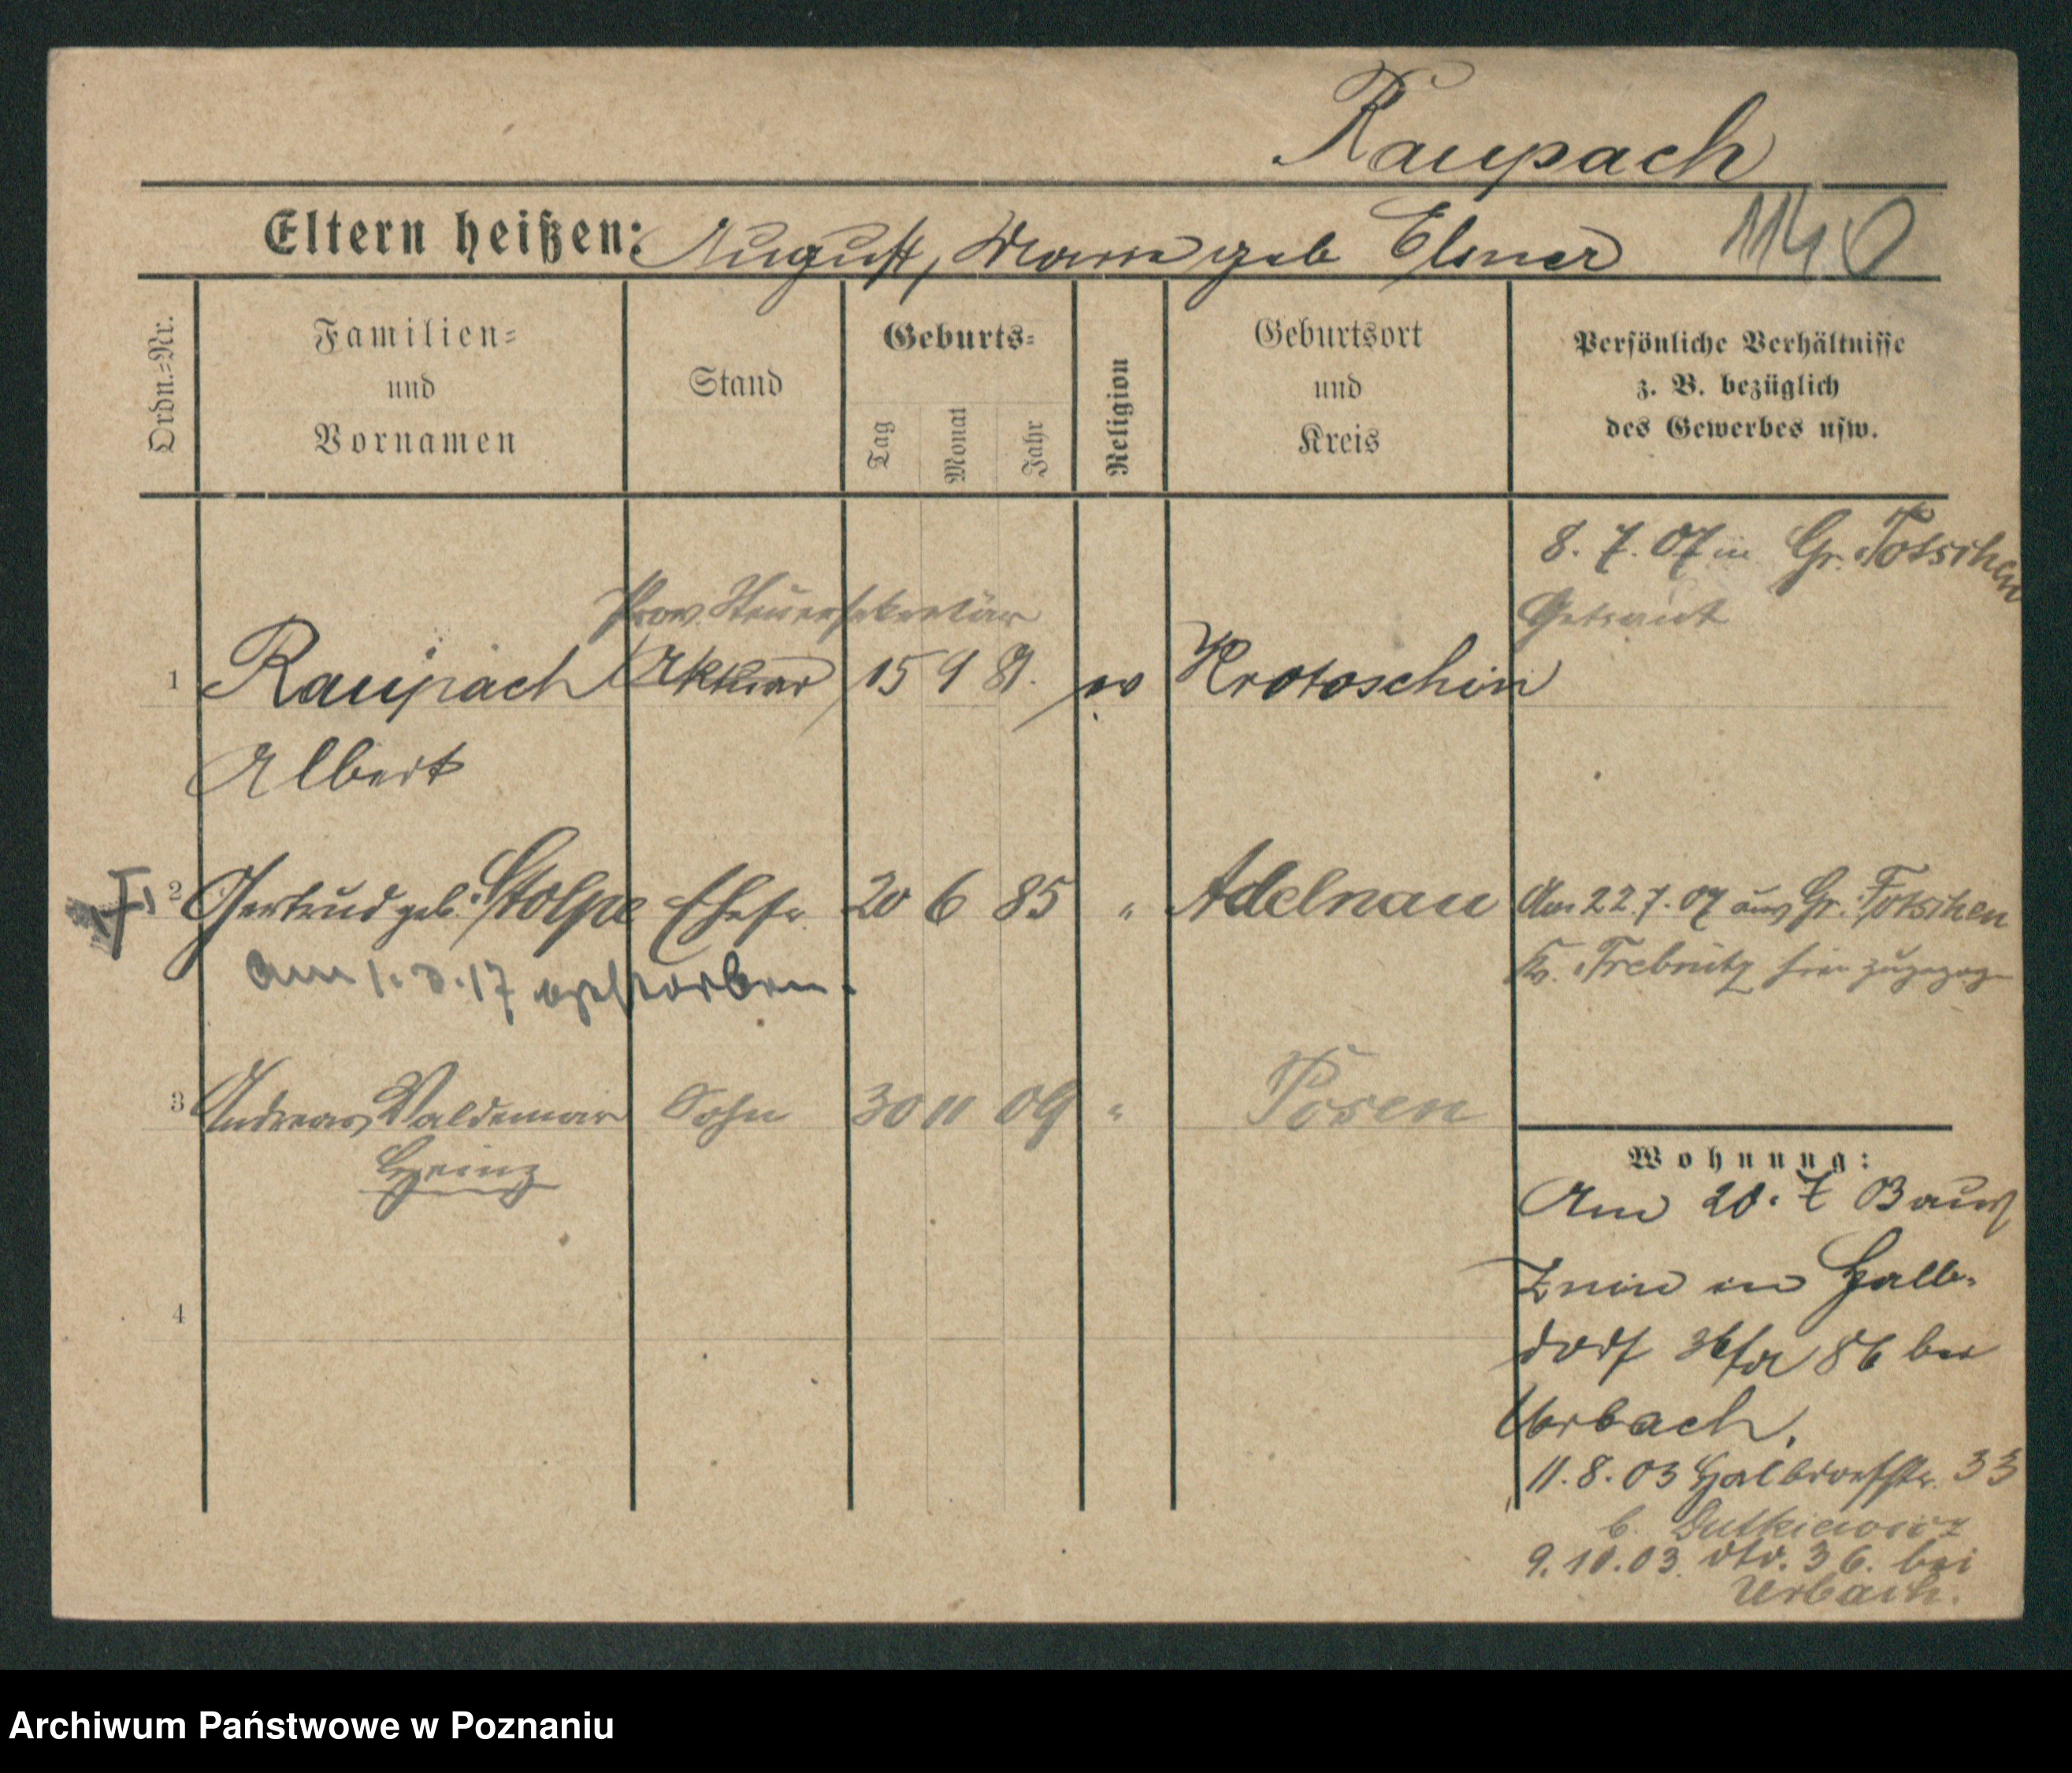 Raupach
Eltern heißen: August, Marie geb Elsner 1140
Ordn.=Nr.
Familien=
und
Vornamen
Stand
Geburts=
Tag
Monat
Jahr
Religion
Geburtsort
und
Kreis
Persönliche Verhältnisse
z. B. bezüglich
des Gewerbes usw.
8. 7. 07 in Gr. Totschen
Getraut
Prov. Steuersekretär
1 Raupach Aktuar 15 9 81. ev Krotoschin
Albert
2 Gertrud geb. Stolpe Ehefr. 20 6 85 " Adelnau
am 1. 3. 17 gestorben.
Am 22.7.07 aus Gr. Totschen
Kr. Trebnitz hier zugezog
3 Andreas Waldemar Sohn 30 11 09 " Posen
Heinz
4
Wohnung:
Am 20. 7 03 aus
Znin in Halb-
dorf 86 bei
Urbach.
11. 8. 03 Halbdorfstr. 33
b. Dutkiewicz
9. 10. 03. dto. 36. bei
Urbach.
Archiwum Państwowe w Poznaniu